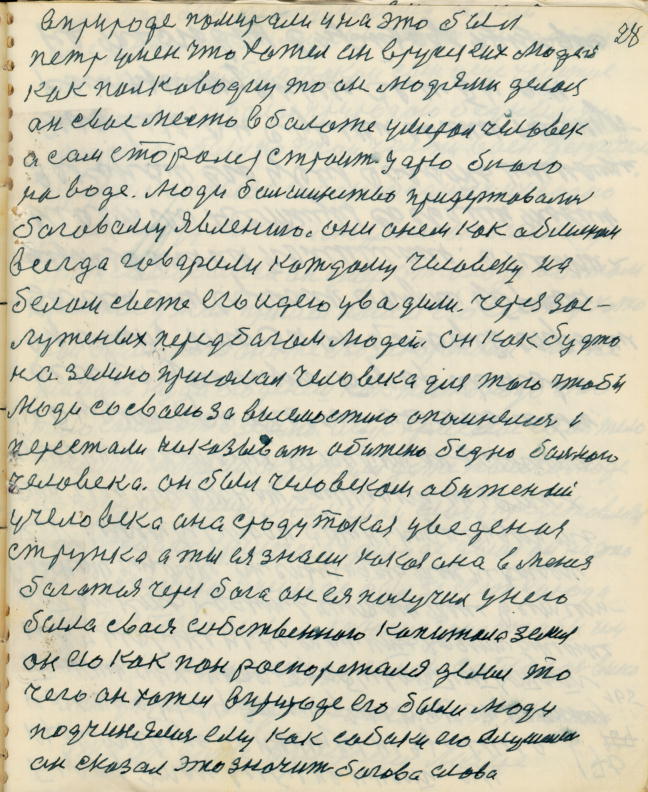 28
в природе помирали и на это был
петр умен что хотел он в русских людей
как полководцу то он людями делал
он свае место в балоте умерал человек
а сам сторался строит
на воде. люди большинство придержовалис
боговаму явлению. они онем как
всегда говарили каждому человеку на
белом свете его идею увадили. через зас-
луженых перед богам людей он как будто
на землю прислал человека для того чтобы
люди со своею за висемостию опомнелися и
перестали наказыват обижено бедно больного
человека. он был человеком обиженый
у человека она сроду такая уведения
струнка а ты ея знаеш какая она в меня
багатая через бога он ея получил у него
была своя собственного капитала земля
он ею как пан роспорежался делал то
чего он хотел в природе его были люди
подчинялися ему как собаки его слушали
он сказал это значит богова слова